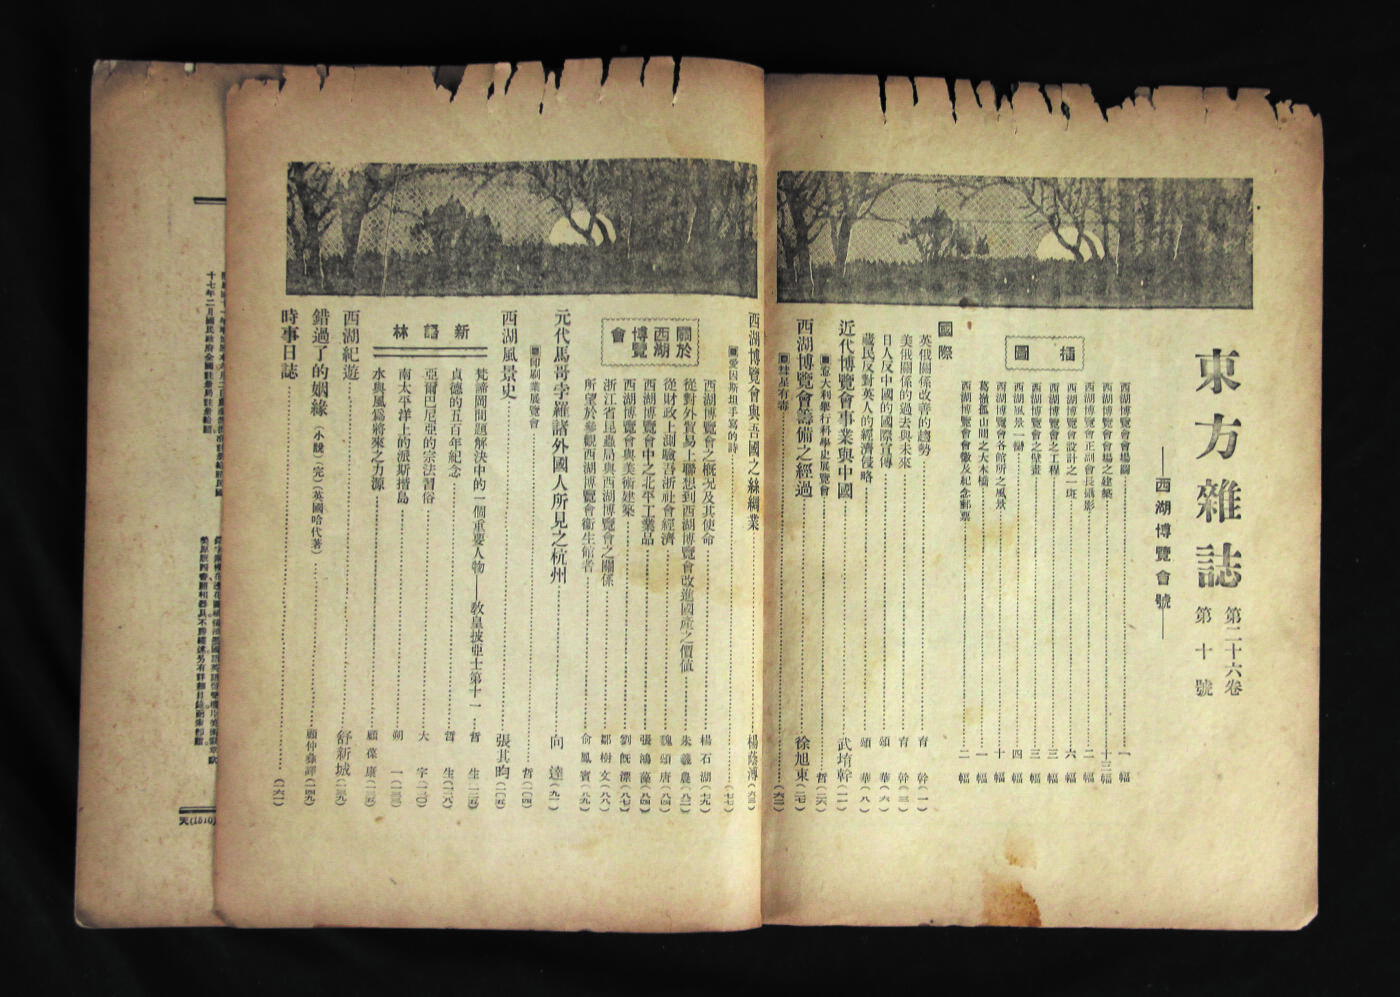 東方雜誌
第二十六卷
第十號
——西湖博覽會號——
插圖
西湖博覽會會場圖 一幅
西湖博覽會會場之建築 十三幅
西湖博覽會正副會長攝影 二幅
西湖博覽會設計之一斑 六幅
西湖博覽會之工程 三幅
西湖博覽會之壁畫 三幅
西湖風景一臠 四幅
西湖博覽會各館所之風景 十幅
葛嶺孤山間之大木橋 一幅
西湖博覽會會徽及紀念郵票 二幅
國際
英俄關係改善的趨勢 育幹(一)
美俄關係的過去與未來 育幹(三)
日人反中國的國際宣傳 頌華(六)
藏民反對英人的經濟侵略 頌華(八)
近代博覽會事業與中國 武堉幹(一一)
意大利舉行科學史展覽會 哲(二六)
西湖博覽會籌備之經過 徐旭東(二七)
彗星有毒 (六二)
西湖博覽會與吾國之絲綢業 楊蔭溥(六三)
愛因斯坦手寫的詩 (七七)
關於西湖博覽會
西湖博覽會之概況及其使命 楊石湖(七九)
從對外貿易上聯想到西湖博覽會改進國產之價值 朱羲農(八二)
從財政上測驗吾浙社會經濟 魏頌唐(八四)
西湖博覽會中之北平工業品 張鴻藻(八四)
西湖博覽會與美術建築 劉旣漂(八七)
浙江省昆蟲局與西湖博覽會之關係 鄒樹文(八八)
所望於參觀西湖博覽會衞生館者 俞鳳賓(八九)
元代馬哥孛羅諸外國人所見之杭州 向達(九一)
印刷業展覽會 哲(一〇四)
西湖風景史 張其昀(一〇五)
新語林
梵諦岡問題解決中的一個重要人物——敎皇披亞士第十一 哲生(一二五)
貞德的五百年紀念 哲生(一二八)
亞爾巴尼亞的宗法習俗 大宇(一三〇)
南太平洋上的派斯揩島 朔一(一三三)
水與風爲將來之力源 顧葆康(一三五)
西湖紀遊 舒新城(一三九)
錯過了的姻緣(小說)(完)(英國哈代著) 顧仲彝譯(一四九)
時事日誌 (一六一)
十七年二月國民政府全國註册局註册給證
天(1510)